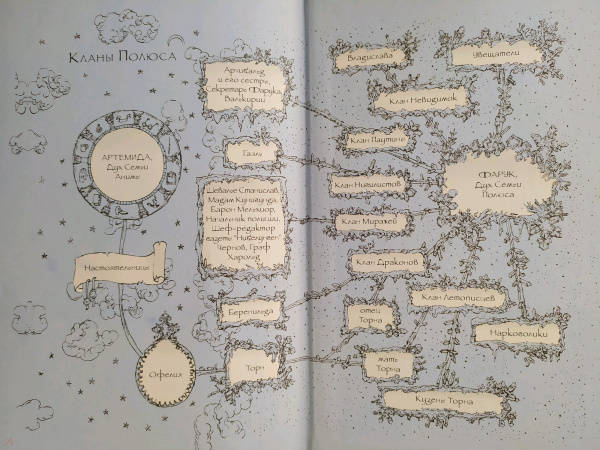 Кланы Полюса
АРТЕМИДА,
Дух Семьи
Анимы
Настоятельницы
Офелия
Арчибальд
и его сестры,
Секретарь Фарука,
Валькирии
Гаэль
Шевалье Станислав,
Мадам Кунигунда,
Барон Мельхиор,
Начальник полиции,
Шеф-редактор
газеты "Нибелунген"
Чернов, Граф
Харольд
Беренильда
Торн
Владислава
Клан Невидимок
Клан Паутины
Клан Нигилистов
Клан Миражей
Клан Драконов
отец
Торна
мать
Торна
Увещатели
ФАРУК,
Дух Семьи
Полюса
Клан Летописцев
Нарковолики
Кузены Торна